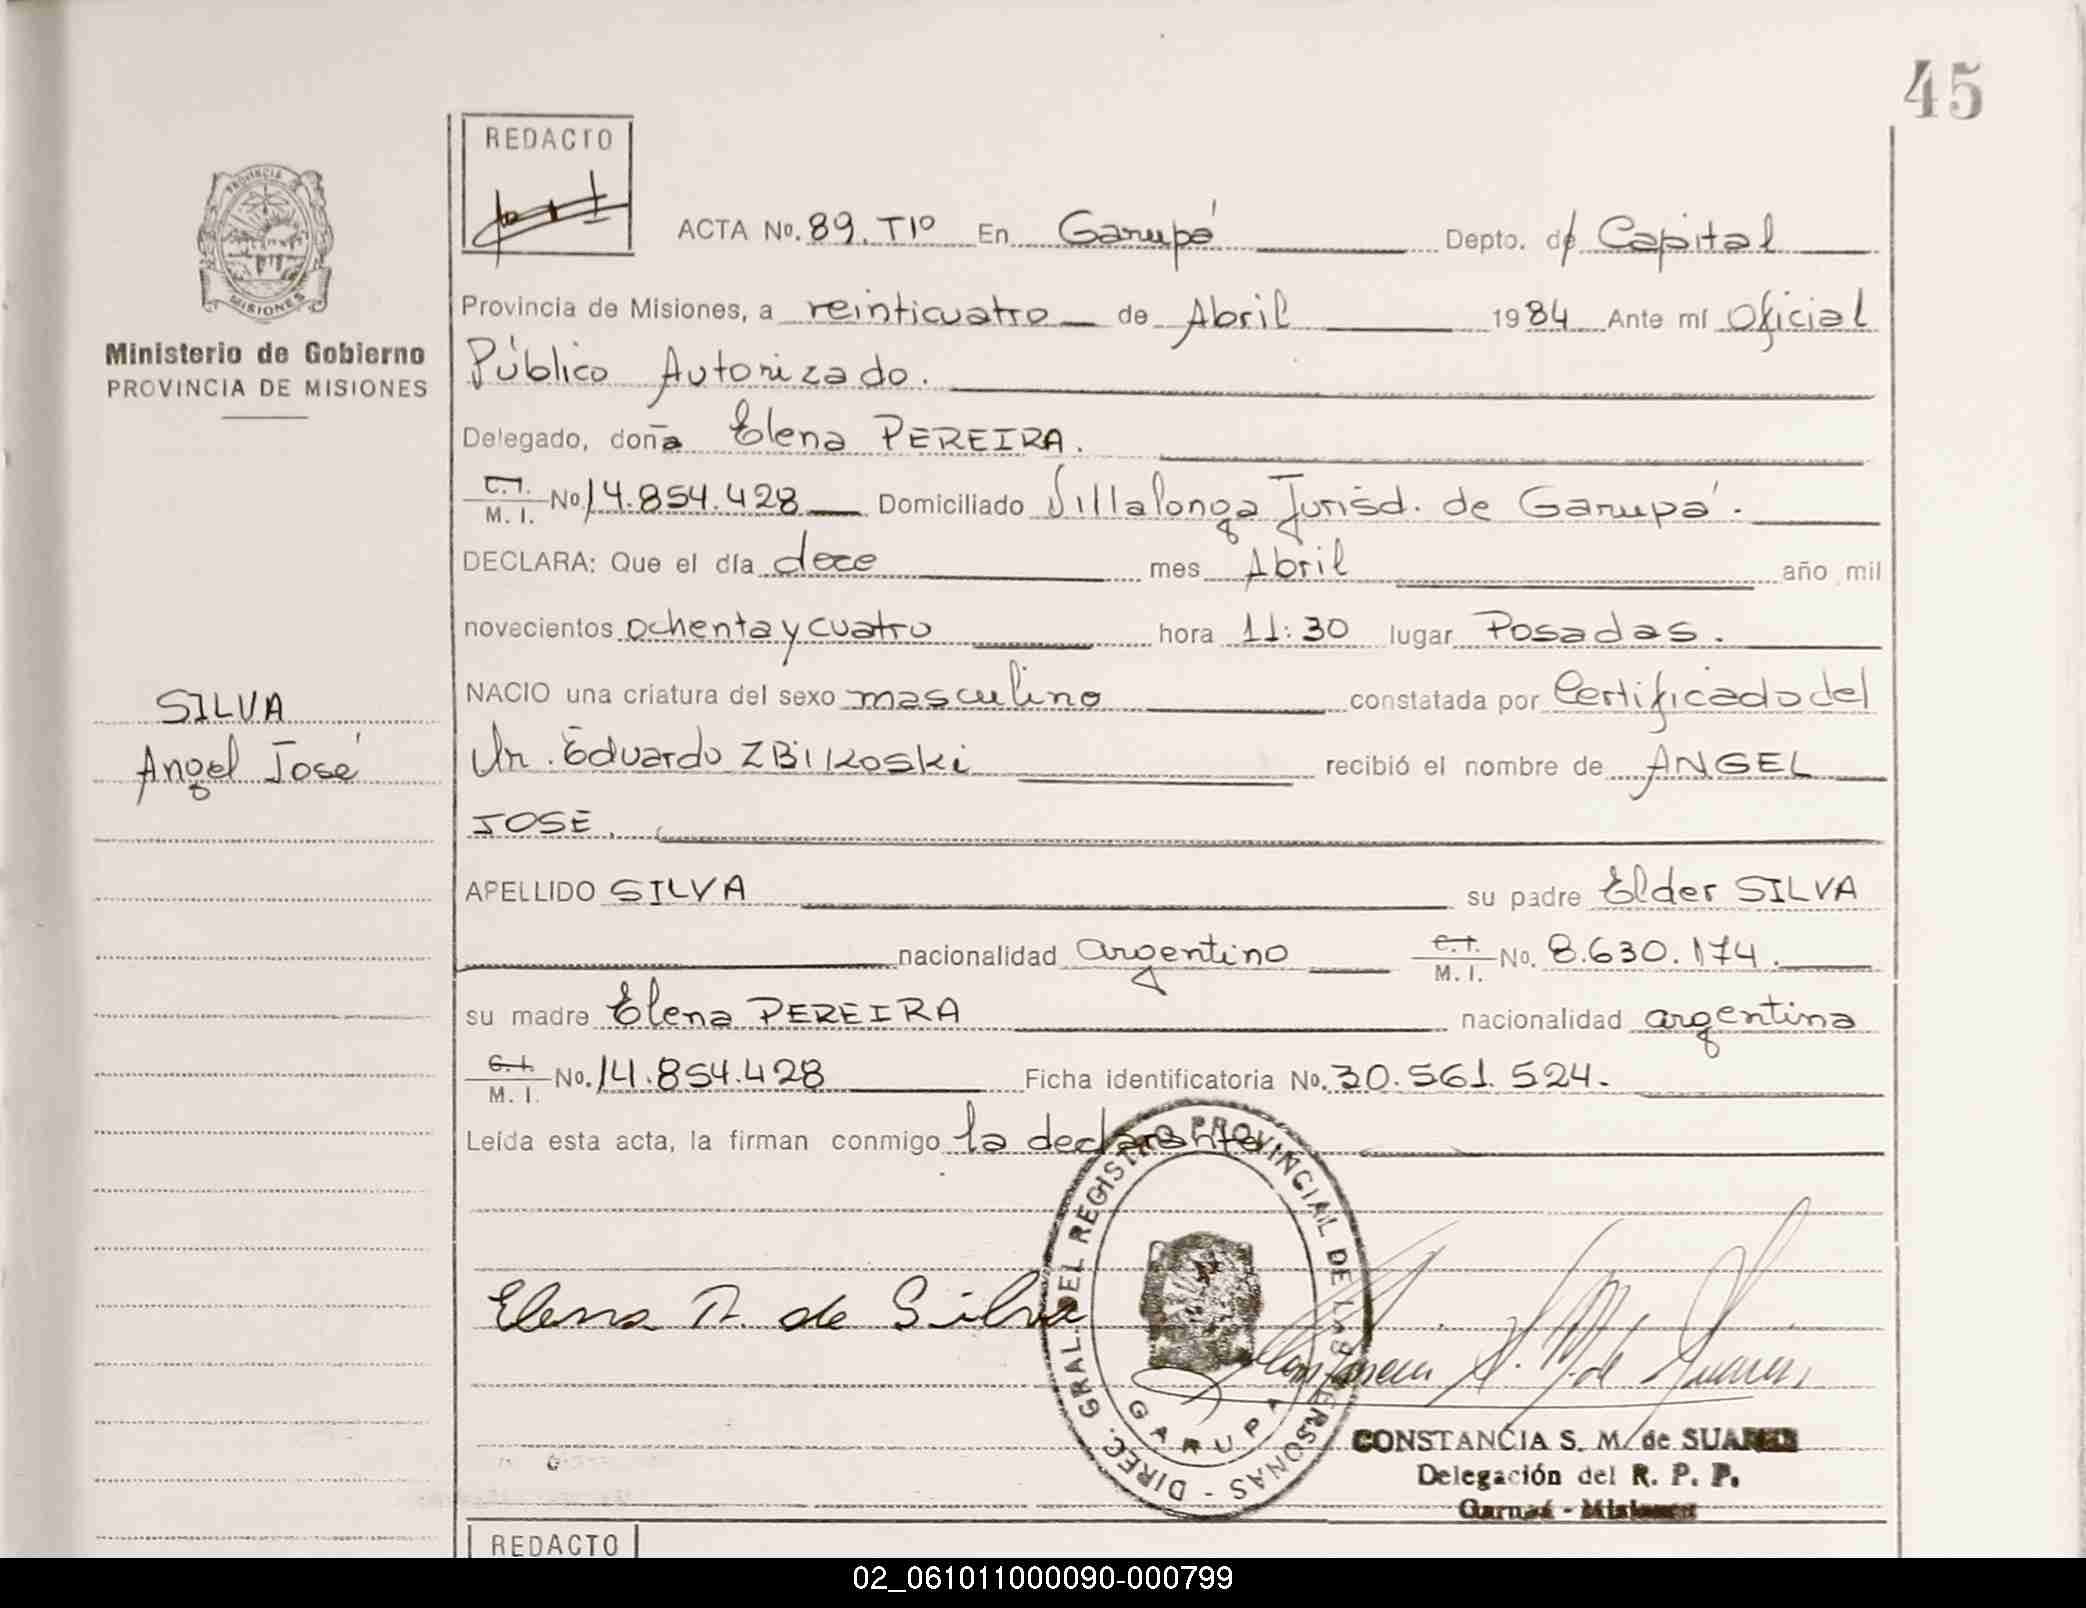 45
REDACTO
PROVINCIA
MISIONES
Ministerio de Gobierno
PROVINCIA DE MISIONES
ACTA No. 89. T1º En Garupá Depto. de Capital
Provincia de Misiones, a veinticuatro de Abril 1984 Ante mí Oficial
Público Autorizado.
Delegado, doña Elena PEREIRA.
C. I.
M. I. No 14.854.428 Domiciliado Villalonga Jurisd. de Garupá.
DECLARA: Que el día doce mes Abril año mil
novecientos ochenta y cuatro hora 11:30 lugar Posadas.
NACIO una criatura del sexo masculino constatada por Certificado del
SILVA
Angel José
Dr. Eduardo ZBIKOSKi recibió el nombre de ANGEL
JOSE.
APELLIDO SILVA su padre Elder SILVA
nacionalidad argentino C. I.
M. I. No. 8.630.174.
su madre Elena PEREIRA nacionalidad argentina
C. I.
M. I. No. 14.854.428 Ficha identificatoria No. 30.561.524.
Leída esta acta, la firman conmigo la declarante
DIREC. GRAL. DEL REGISTRO PROVINCIAL DE LAS PERSONAS -
GARUPA
Elena P. de Silva
CONSTANCIA S. M. de SUAREZ
Delegación del R. P. P.
Garupá - Misiones
REDACTO
02_061011000090-000799